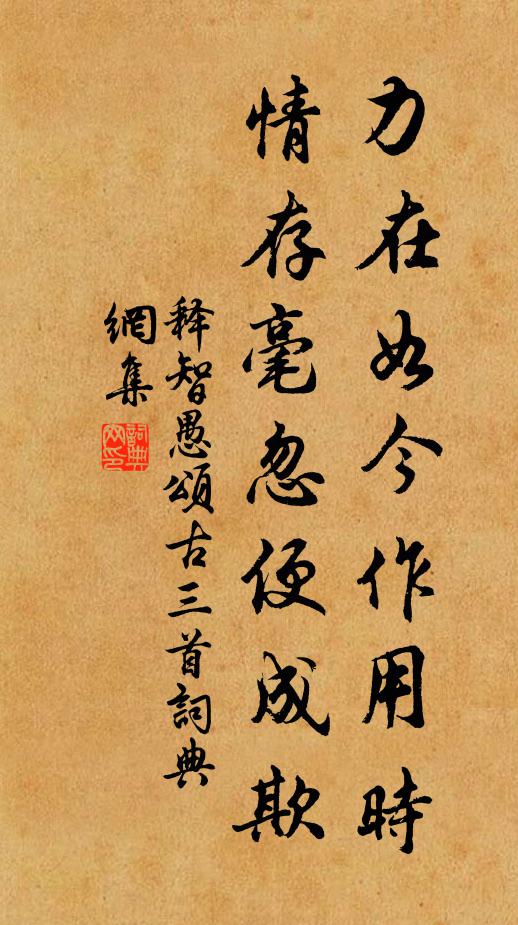 力在如今作用時
情存毫忽便成欺
释智愚頌古三首詞典
網集
詞典
网印